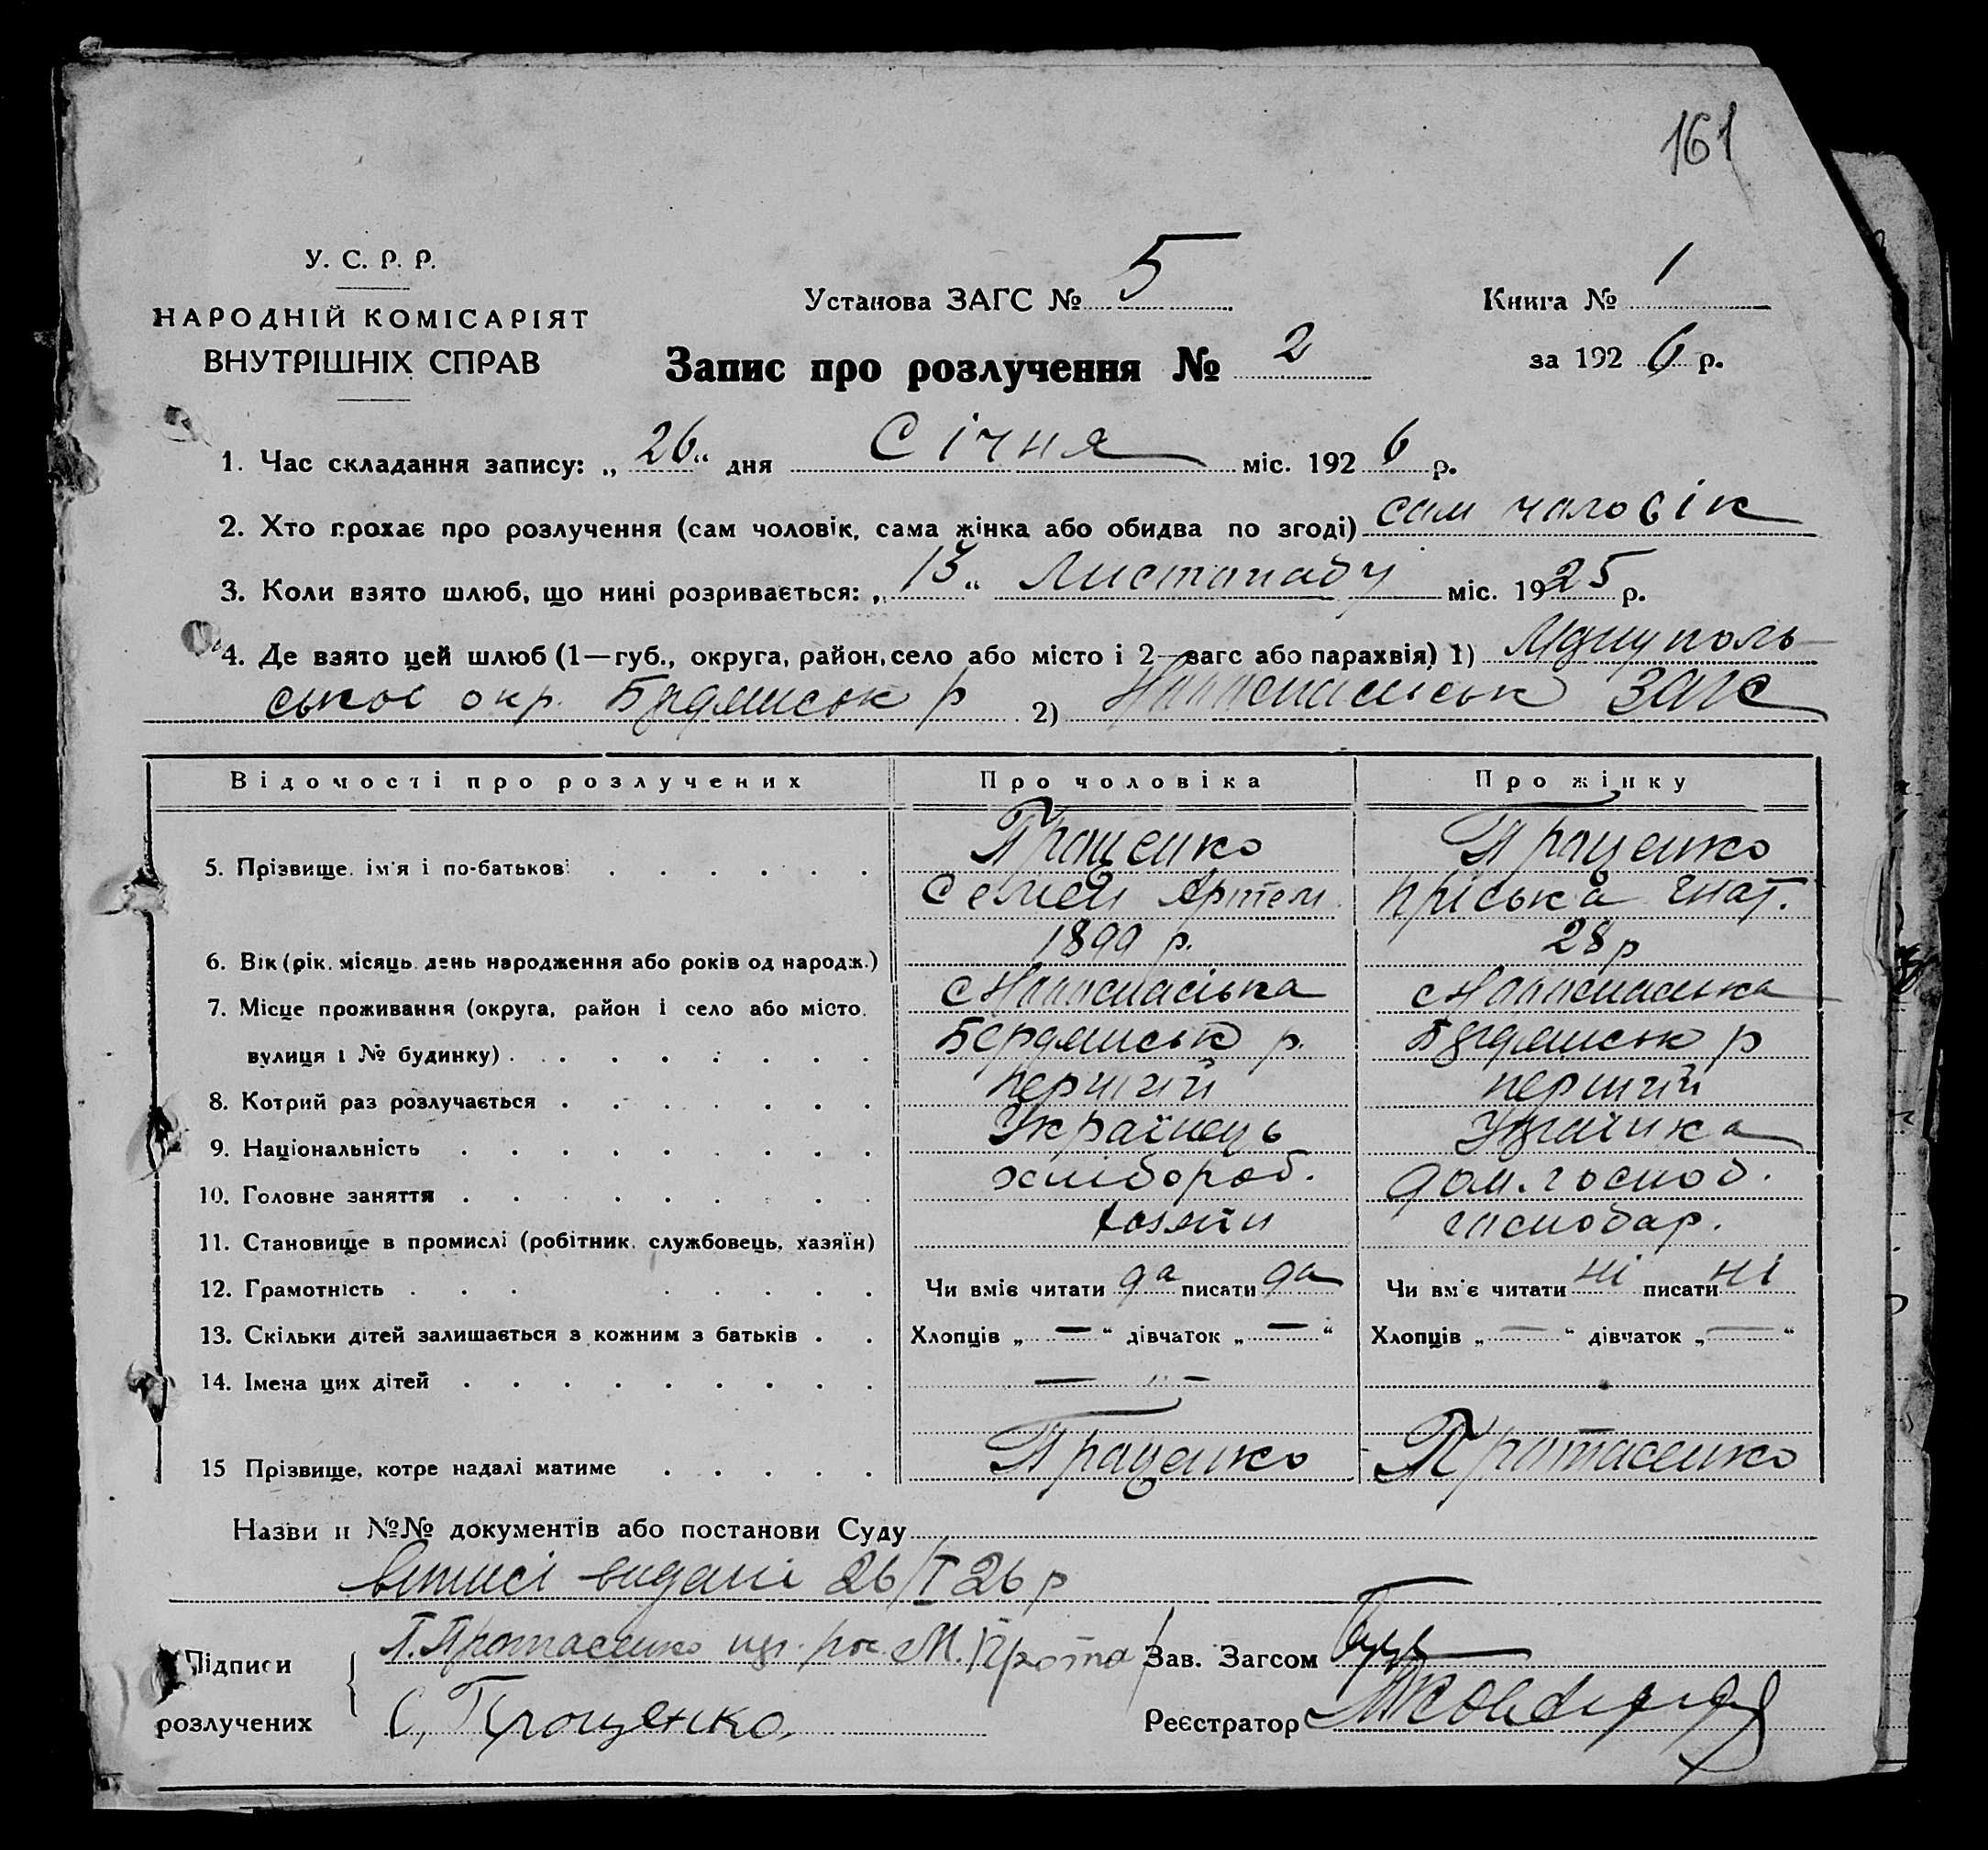 161
У. С. Р. Р.
НАРОДНІЙ КОМІСАРІЯТ
ВНУТРІШНІХ СПРАВ
Установа ЗАГС № 5
Книга № 1
Запис про розлучення № 2
за 1926 р.
1. Час складання запису: „26“ дня Січня міс. 1926 р.
2. Хто прохає про розлучення (сам чоловік, сама жінка або обидва по згоді) сам чоловік
3. Коли взято шлюб, що нині розривається: „13“ Листопаду міс. 1925 р.
4. Де взято цей шлюб (1—губ., округа, район, село або місто і 2—загс або парахвія) 1) Маріуполь-
ської окр. Бердянськ р 2) ЗАГС
Відомості про розлучених Про чоловіка Про жінку
5. Прізвище, ім'я і по-батькові Проценко Проценко
Семен Артем. Пріська Гнат.
6. Вік (рік, місяць, день народження або років од народж.) 1899 р. 28 р
7. Місце проживання (округа, район і село або місто,
вулиця і № будинку) Бердянськ р. Бердянськ р
8. Котрий раз розлучається перший перший
9. Національність Українець Українка
10. Головне заняття хлібороб. дом. господ.
11. Становище в промислі (робітник, службовець, хазяїн) господар.
12. Грамотність Чи вміє читати да писати да Чи вміє читати ні писати ні
13. Скільки дітей залишається з кожним з батьків Хлопців „—“ дівчаток „—“ Хлопців „—“ дівчаток „—“
14. Імена цих дітей — „ —
15 Прізвище, котре надалі матиме Проценко Протасенко
Назви и №№ документів або постанови Суду
виписі видані 26/I 26 р
Підписи П. Протасенко М. Прота Зав. Загсом
розлучених С. Проценко. Реєстратор